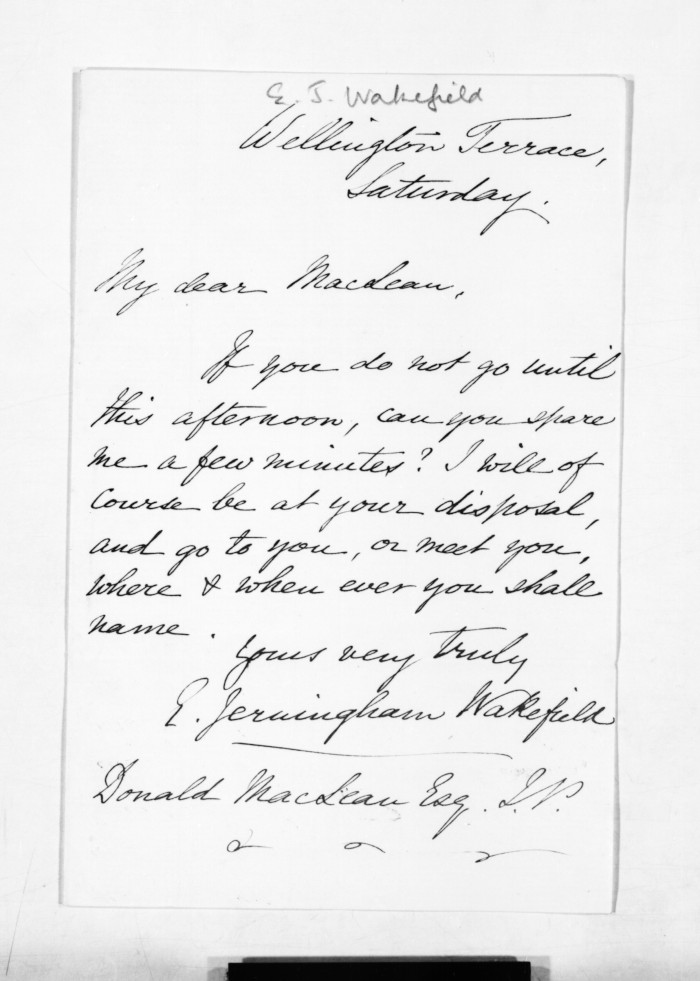 E. J. Wakefield
Wellington Terrace,
Saturday.
My dear MacLean,
If you do not go until
this afternoon, can you spare
me a few minutes? I will of
course be at your disposal,
and go to you, or meet you,
where & when ever you shall
name.
Yours very truly
E. Jerningham Wakefield
Donald MacLean Esq. J.P.